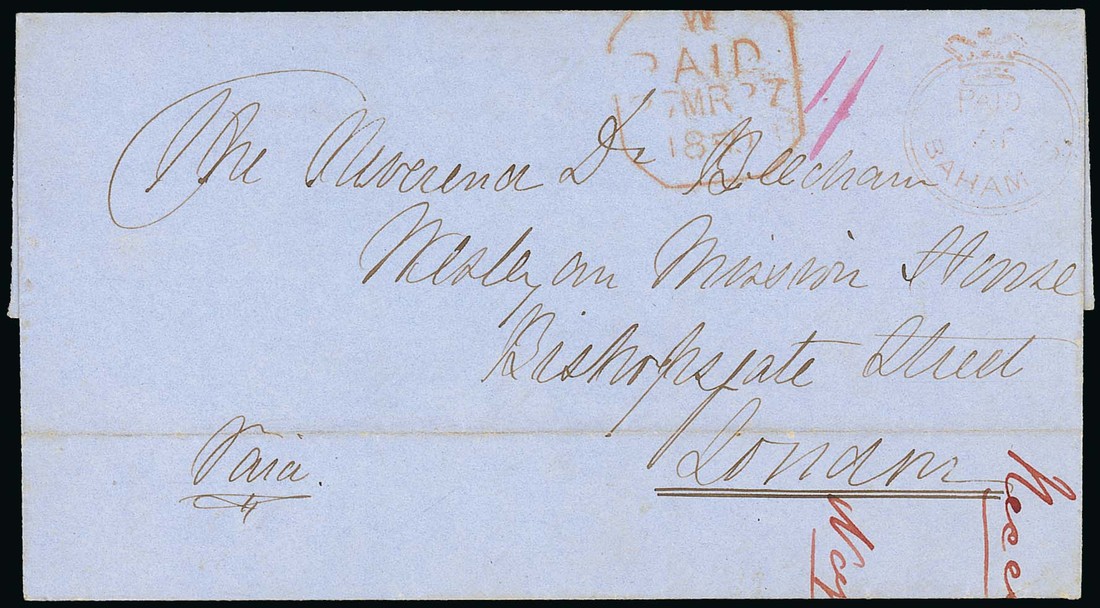 W
PAID
27MR27
PAID
BAHAM
The Reverend Dr Beecham
Wesleyan Mission House
Bishopsgate Street
London
Paid.